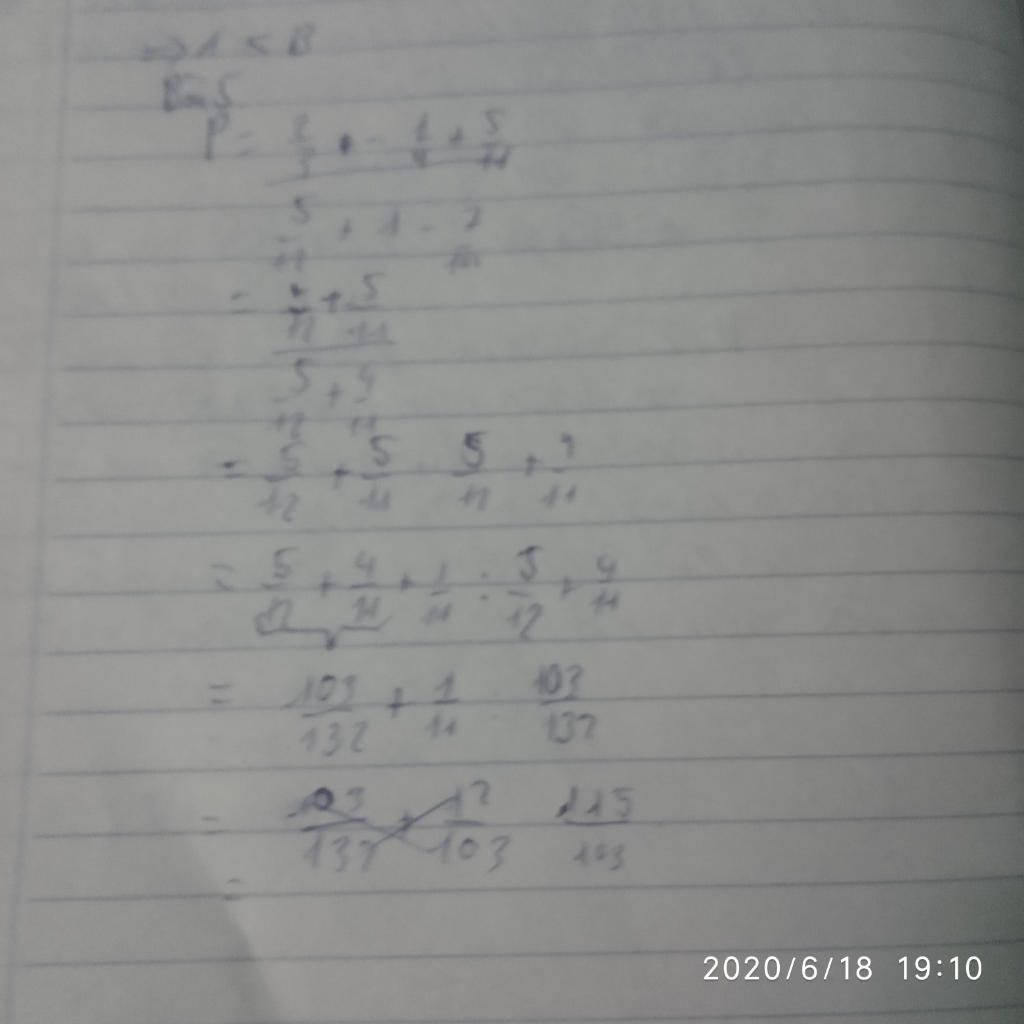 => A < B
Bài 5
P = 2/3 - 1/4 + 5/11
5/12 + 1 - 7/11
= 5/12 + 5/11
5/12 + 4/11
= 5/12 + 5/11 5/12 + 4/11
= 5/12 + 4/11 + 1/11 : 5/12 + 4/11
= 103/132 + 1/11 103/132
= 115/103
=
2020/6/18 19:10